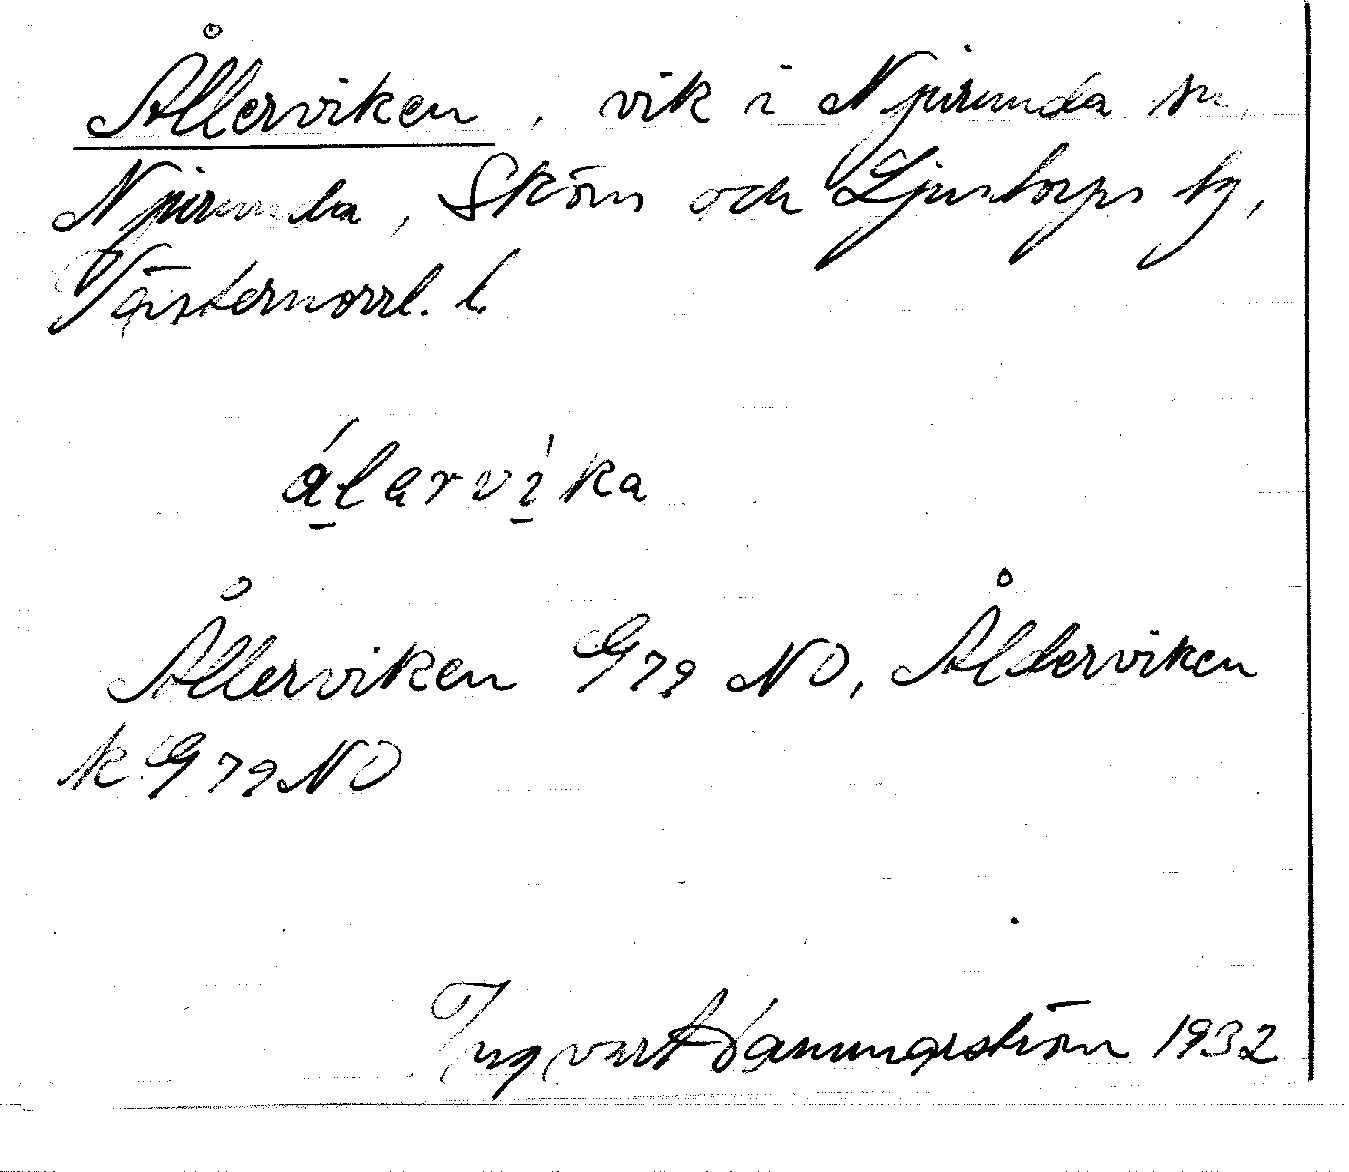 Ållerviken, vik i Njurunda sn,
Njurunda, Sköns och Ljustorps tg,
Västernorrl. l.
álarvíka
Ållerviken G79 NO, Ålderviken
k G79 NO
Ingvart Hammarström 1932